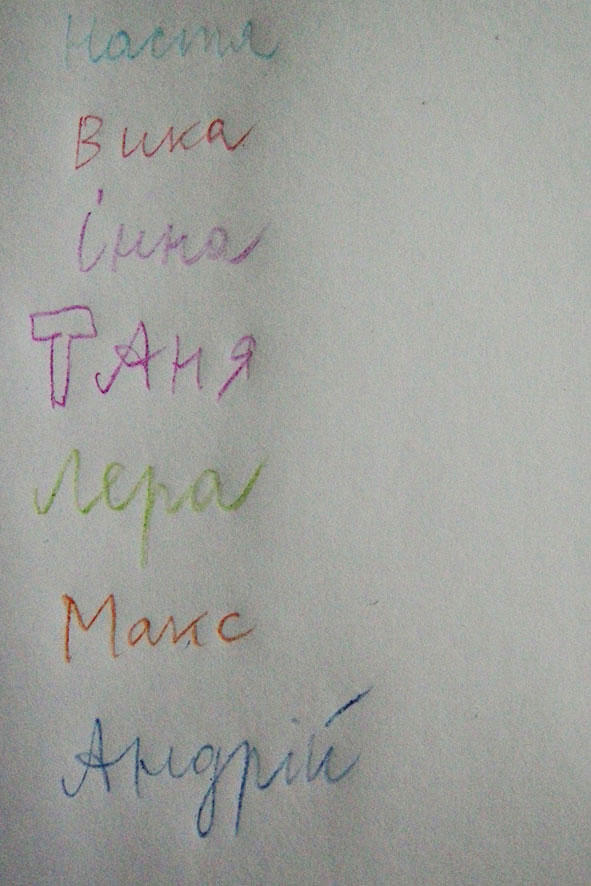 Настя
Вика
інна
ТАня
Лера
Макс
Андрій